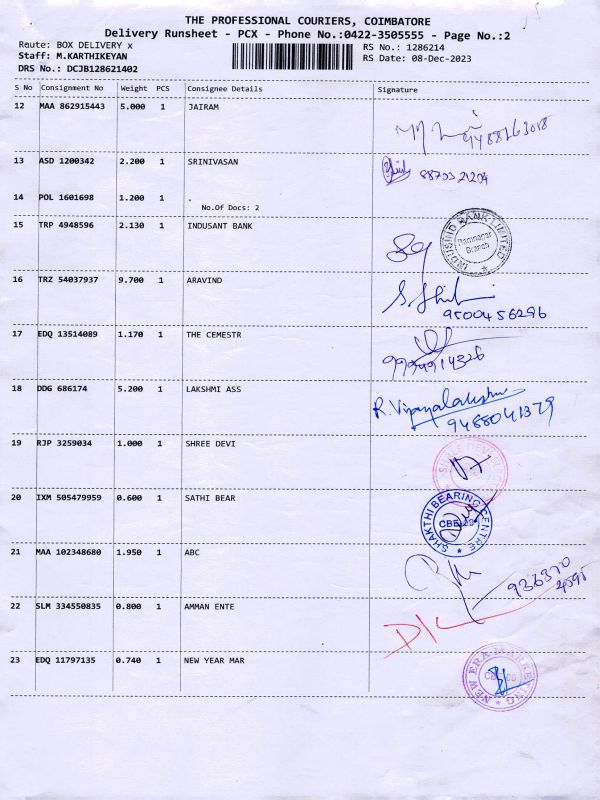 THE PROFESSIONAL COURIERS, COIMBATORE
Delivery Runsheet - PCX - Phone No.:0422-3505555 - Page No.:2
Route: BOX DELIVERY x RS No.: 1286214
Staff: M.KARTHIKEYAN RS Date: 08-Dec-2023
DRS No.: DCJB128621402
S No Consignment No Weight PCS Consignee Details Signature
12 MAA 862915443 5.000 1 JAIRAM
9488163018
13 ASD 1200342 2.200 1 SRINIVASAN
8870321204
14 POL 1601698 1.200 1 .
No.Of Docs: 2
15 TRP 4948596 2.130 1 INDUSANT BANK
INDUSIND BANK LIMITED
Ramnagar
Branch
16 TRZ 54037937 9.700 1 ARAVIND
9500456296
17 EDQ 13514089 1.170 1 THE CEMESTR
9994914326
18 DDG 686174 5.200 1 LAKSHMI ASS
R. Vijayalakshmi
9488041379
19 RJP 3259034 1.000 1 SHREE DEVI
20 IXM 505479959 0.600 1 SATHI BEAR
SHAKTHI BEARING CENTRE
CBE-09
21 MAA 102348680 1.950 1 ABC
936370
4595
22 SLM 334550835 0.800 1 AMMAN ENTE
23 EDQ 11797135 0.740 1 NEW YEAR MAR
NEW ERA MARKETING